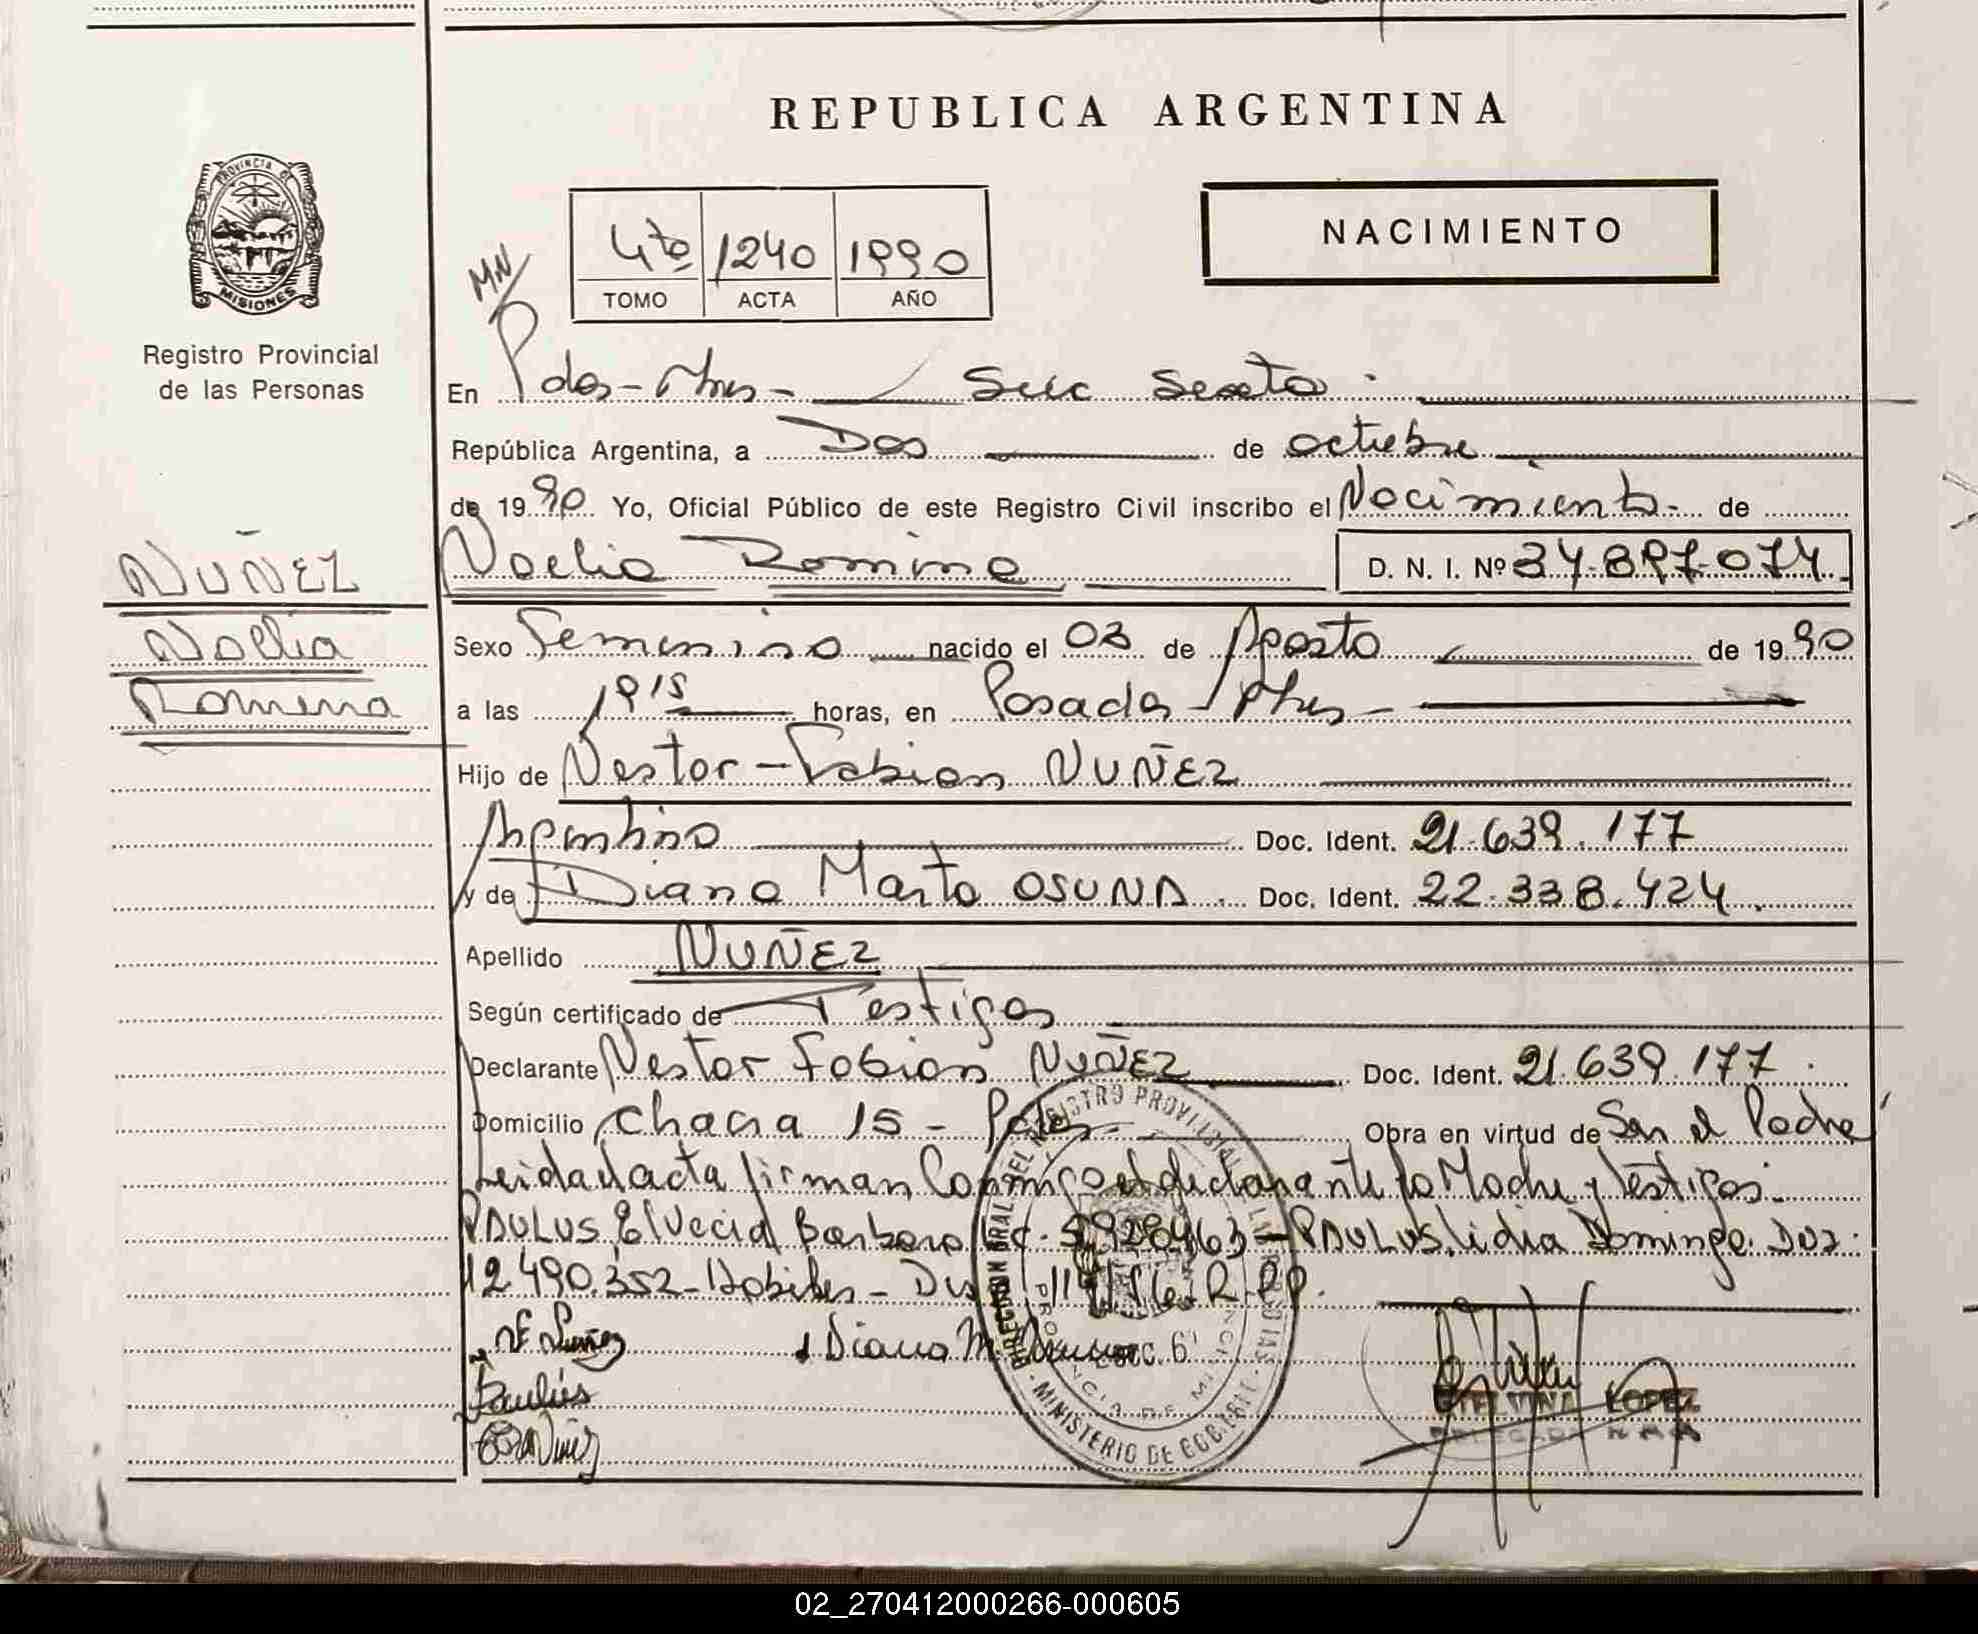 REPUBLICA ARGENTINA
NACIMIENTO
PROVINCIA DE
MISIONES
Registro Provincial
de las Personas
MN
4to 1240 1990
TOMO ACTA AÑO
En Pdas - Mnes - Secc Sexta
República Argentina, a Dos de octubre
de 1990 Yo, Oficial Público de este Registro Civil inscribo el Nacimiento - de
Noelia Romina D. N. I. Nº 34.897.074
NUÑEZ
Noelia
Romina
Sexo Femenino nacido el 03 de Agosto de 1990
a las 1915 horas, en Posadas Mnes -
Hijo de Nestor - Fabian NUÑEZ
Argentino Doc. Ident. 21.639.177
y de Diana Marta OSUNA Doc. Ident. 22.338.424
Apellido NUÑEZ
Según certificado de Testigos
Declarante Nestor Fabian NUÑEZ Doc. Ident. 21.639.177
Domicilio Chacra 15 - Pdas - Obra en virtud de Ser el Padre
Leida el acta firman Conmigo el declarante la Madre y testigos:
PAULUS, Elvecia Barbara - PAULUS, Lidia Dominga. DNI
12.490.352 - Habiles - R.P.P.
NF Nuñez Diana M. Osuna SECC. 6
Paulus
DIRECCION GRAL DEL REGISTRO PROVINCIAL DE LAS PERSONAS
PROVINCIA DE MISIONES
MINISTERIO DE GOBIERNO
LOPEZ
DELEGADA
02_270412000266-000605